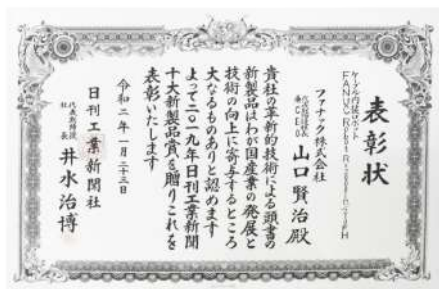 表彰状
ケーブル内装ロボット
ファナック株式会社
代表取締役社長
兼CEO
山口賢治殿
貴社の革新的技術による頭書の
新製品はわが国産業の発展と
技術の向上に寄与するところ
大なるものありと認めます
よって二〇一九年日刊工業新聞
十大新製品賞を贈りこれを
表彰いたします
令和二年一月二十三日
日刊工業新聞社
代表取締役
社長
井水治博